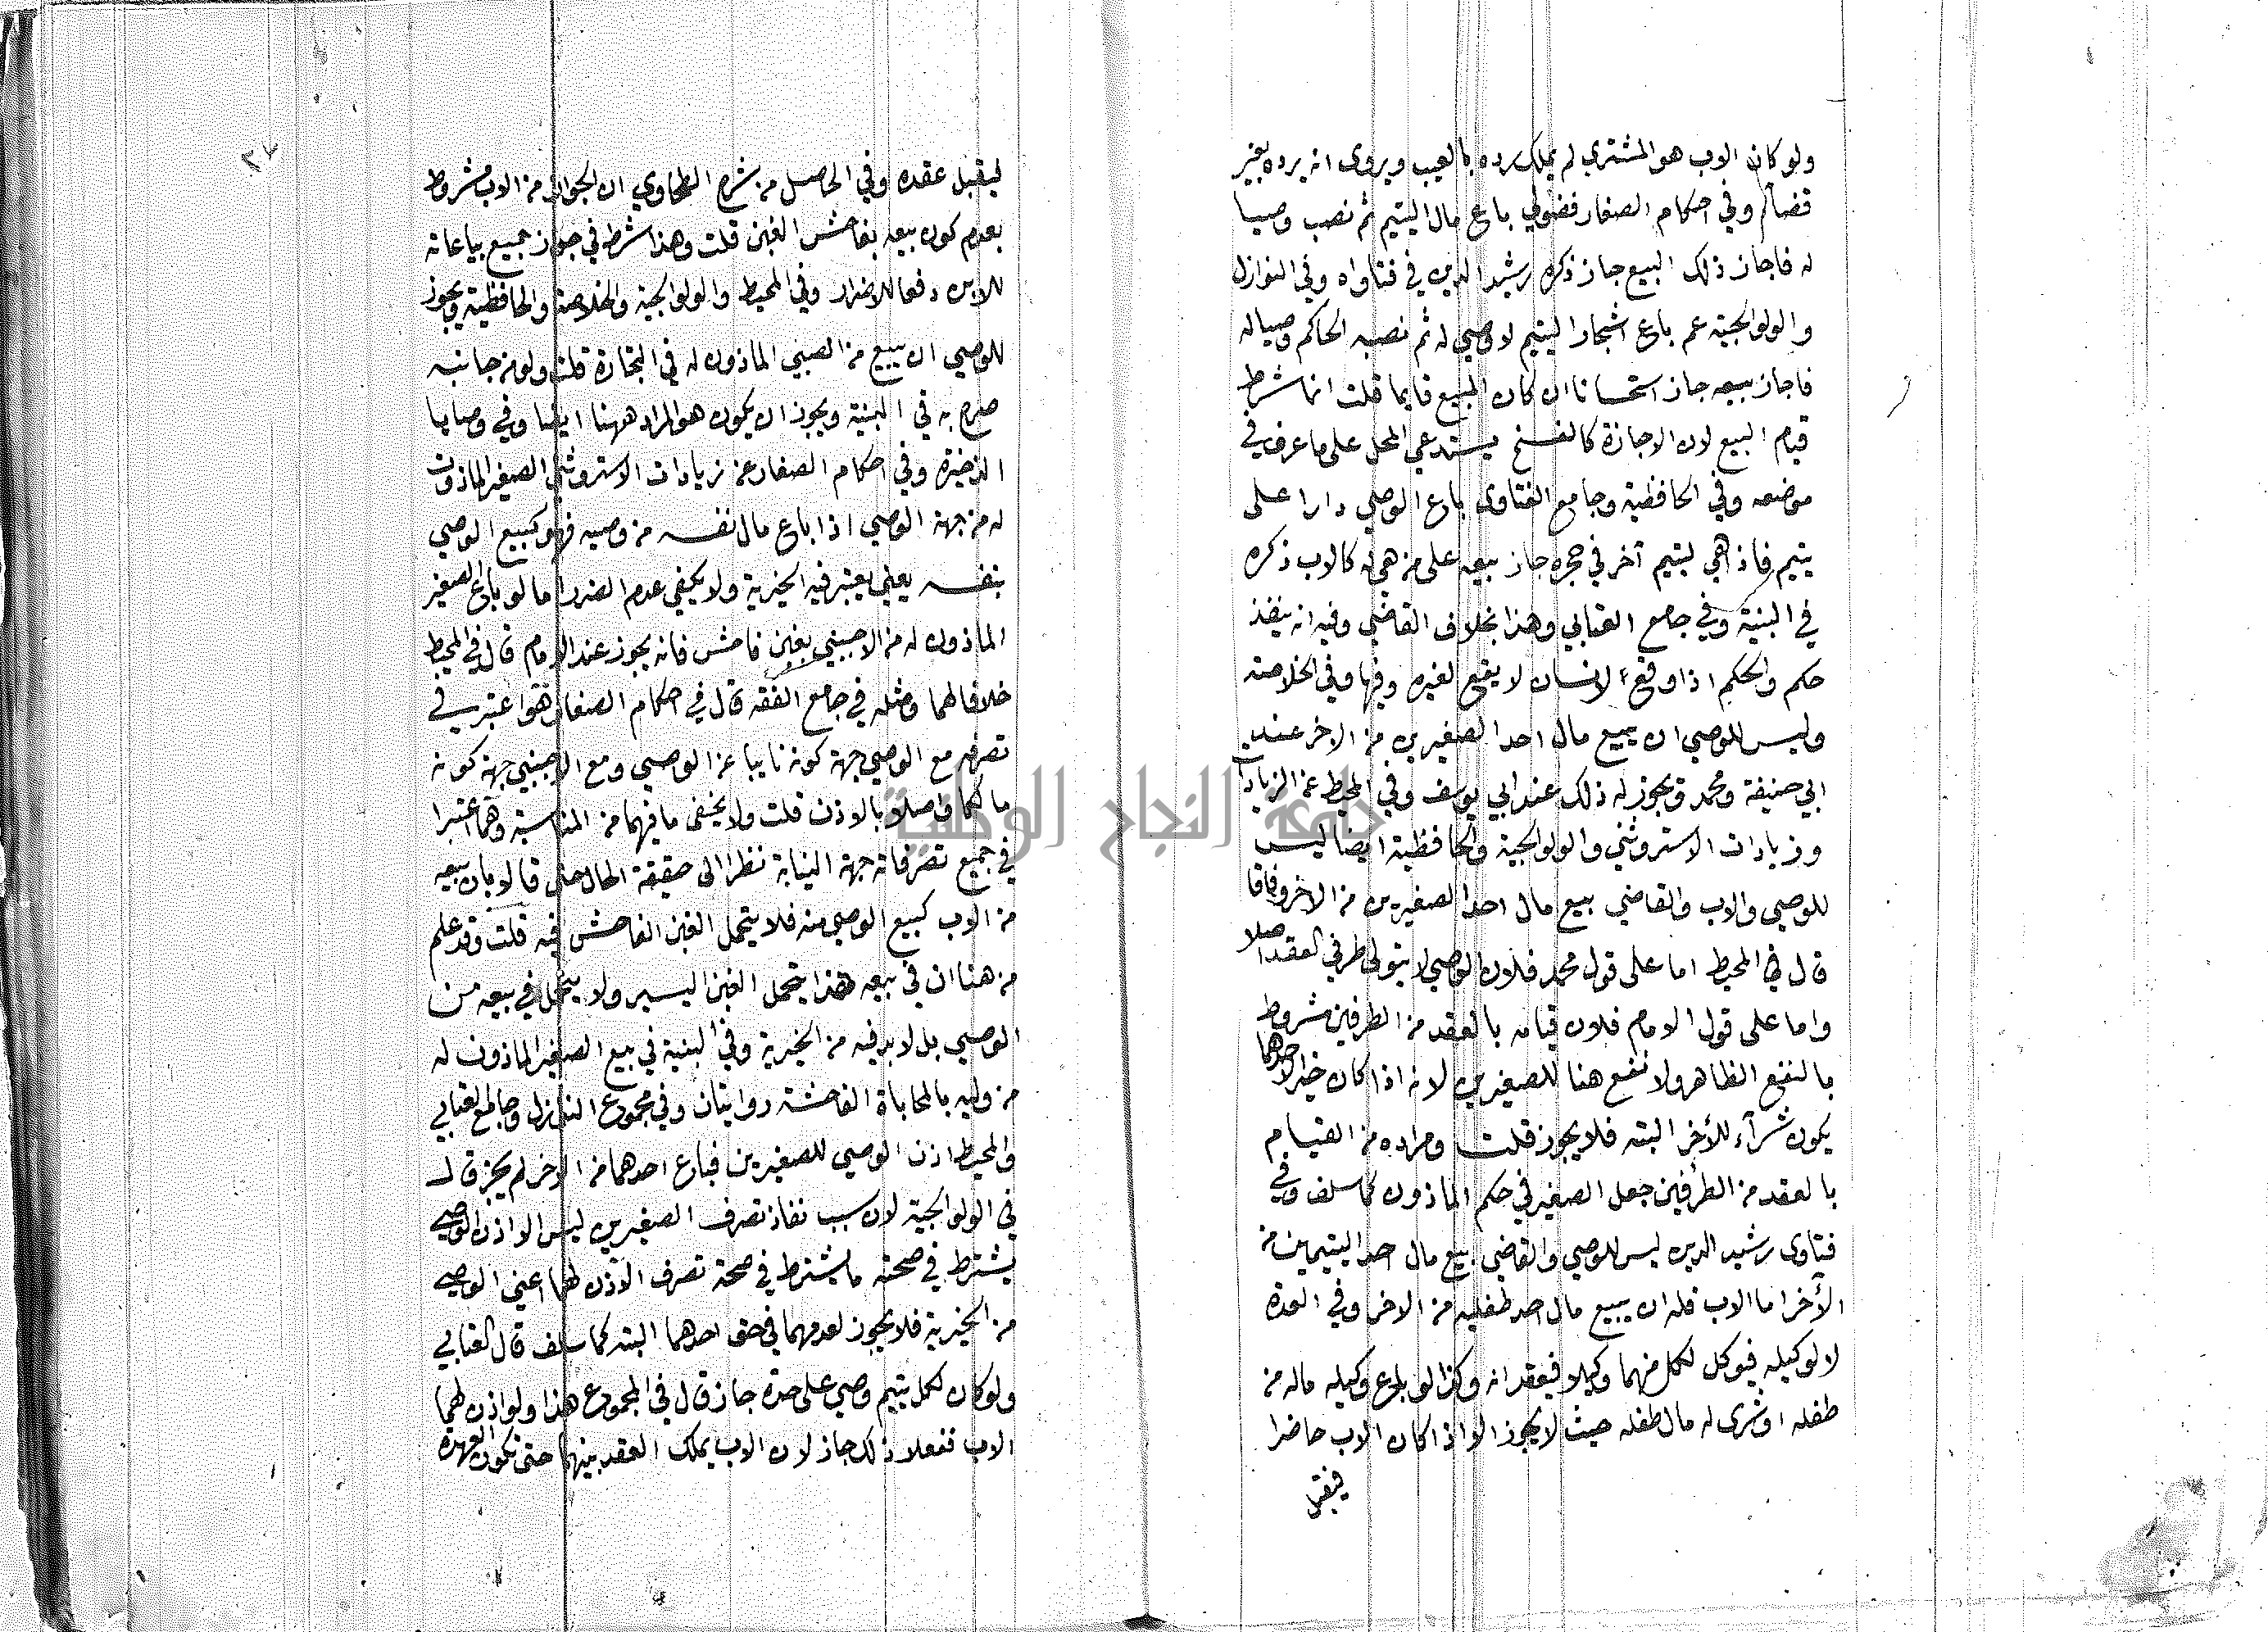 ولو كان الاب هو المشتري لم يملك رده بالعيب ويروى انه يرده بغير
قضاء وفي احكام الصغار فضولي باع مال اليتيم ثم نصب وصيا
له فاجاز ذلك البيع جاز ذكره رشيد الدين في فتاواه وفي النوازل
والولوالجية عم باع اشجار اليتيم لا وصي له ثم نصبه الحاكم وصيا له
فاجاز بيعه جاز استحسانا ان كان المبيع قايما قلت انما شرط
قيام البيع لان الاجازة كالفسخ يستدعي المحل على ما عرف في
موضعه وفي الحافظية وجامع الفتاوى باع الوصي دارا على
يتيم فاذ هي ليتيم آخر في حجره جاز بيعه على من هي له كالاب ذكره
في البنية وفي جامع العتابي وهذا بخلاف القاضي وفيه انه ينفذ
حكم والحكم اذا وقع لانسان لا يقع لغيره وفيها وفي الخلاصة
وليس للوصي ان يبيع مال احد الصغيرين من الاخر عند
ابي حنيفة ومحمد ويجوز له ذلك عند ابي يوسف وفي المحيط عن الزيادات
وزيادات الاستروشني والولوالجية والحافظية ايضا ليس
للوصي والاب والقاضي بيع مال احد الصغيرين من الاخر وفاقا
قال في المحيط اما على قول محمد فلان الوصي لا يتولى طرفي العقد اصلا
واما على قول الامام فلان قيامه بالعقد من الطرفين مشروط
بالنفع الظاهر ولا نفع هنا للصغيرين لانه اذا كان خيرا لاحدهما
يكون شرآء للأخر البته فلا يجوز قلت ومراده من القيام
بالعقد من الطرفين جعل الصغير في حكم الماذون كما سلف وفي
فتاوى رشيد الدين ليس للوصي والقاضي بيع مال احد اليتيمين من
الأخر اما الاب فله ان يبيع مال احد طفليه من الاخر وفي العدة
لا لوكيله فيوكل لكل منهما وكيلا فيعقدانه وكذا لو باع وكيله ماله من
طفله او شرى له مال طفله حيث لا يجوز الا اذا كان الاب حاضرا
فيقبل
ليقبل عقده وفي الحاصل من شرح الطحاوي ان الجواز من الاب مشروط
بعدم كون بيعه بفاحش الغبن قلت وهذا شرط في جواز جميع بياعاته
للابن دفعا للاضرار وفي المحيط والولوالجية والخلاصة والحافظية ويجوز
للوصي ان يبيع من الصبي الماذون له في التجارة قلت ولو من جانبه
صرح به في البنية ويجوز ان يكون هو المراد ههنا ايضا وفي وصايا
الذخيرة وفي احكام الصغار عن زيادات الاستروشني الصغير الماذون
له من جهة الوصي اذا باع مال نفسه من وصيه فهو كبيع الوصي
بنفسه يعني يعتبر فيه الخيرية ولا يكفي عدم الضرر اما لو باع الصغير
الماذون له من الاجنبي بغبن فاحش فانه يجوز عند الامام قال في المحيط
خلافا لهما ومثله في جامع الفقه قال في احكام الصغار فهو اعتبر في
تصرفه مع الوصي جهة كونه نايبا عن الوصي ومع الاجنبي جهة كونه
مالكا واصلا بالاذن قلت ولا يخفى ما فيهما من المناسبة وهما اعتبرا
في جميع تصرفاته جهة النيابة نظرا الى حقيقة الحال حتى قالا بان بيعه
من الاب كبيع الوصي منه فلا يتحمل الغبن الفاحش فيه قلت وقد علم
من هنا ان في بيعه هذا يتحمل الغبن اليسير ولا يتحمل في بيعه من
الوصي بل لا بد فيه من الخيرية وفي البنية في بيع الصغير الماذون له
من وليه بالمحاباة الفاحشة روايتان وفي مجموع النوازل وجامع العتابي
والمحيط اذن الوصي للصغيرين فباع احدهما من الاخر لم يجز قال
في الولوالجية لان سبب نفاذ تصرف الصغيرين ليس الا اذن الوصي
يشترط في صحته ما يشترط في صحة تصرف الآذن لهما اعني الوصي
من الخيرية فلا يجوز لعدمهما في حق احدهما البته كما سلف قال العتابي
ولو كان لكل يتيم وصي على حدة جاز قال في المجموع هذا ولو اذن لهما
الاب ففعلا ذلك جاز لان الاب يملك العقد بينهما حتى تكون العهدة
جامعة النجاح الوطنية